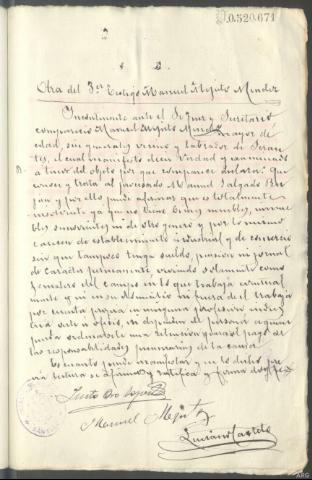 0.520.671
Otra del 3er testigo Manuel Mejuto Mendez
Incontinente ante el Sr Juez y Secretario
comparecio Manuel Mejuto Mendez mayor de
edad, sin generales vecino y labrador de Seran-
tes, el cual manifesto decir verdad y examinado
a tenor del objeto por que comparece declaró: que
conoce y trata al procesado Manuel Salgado
y por ello puede afirmar que es totalmente
insolvente ya que no tiene bienes muebles, inmue-
bles semovientes ni de otro genero y por lo mismo
carece de establecimiento industrial y de comercio
sin que tampoco tenga sueldo, pension ni jornal
de caracter permanente, viviendo solamente como
jornalero del campo en lo que trabaja eventual
mente y ni en su domicilio ni fuera de él trabaja
por cuenta propia en ninguna profesion indus-
tria arte u oficio, sin depositar de persona alguna
las responsabilidades pecuniarias de la causa.
Es cuanto puede manifestar y en lo dicho pre
via lectura se afirma y ratifica y firma doy fe
Justo
Manuel Mejuto
Luciano Castelo
ARG